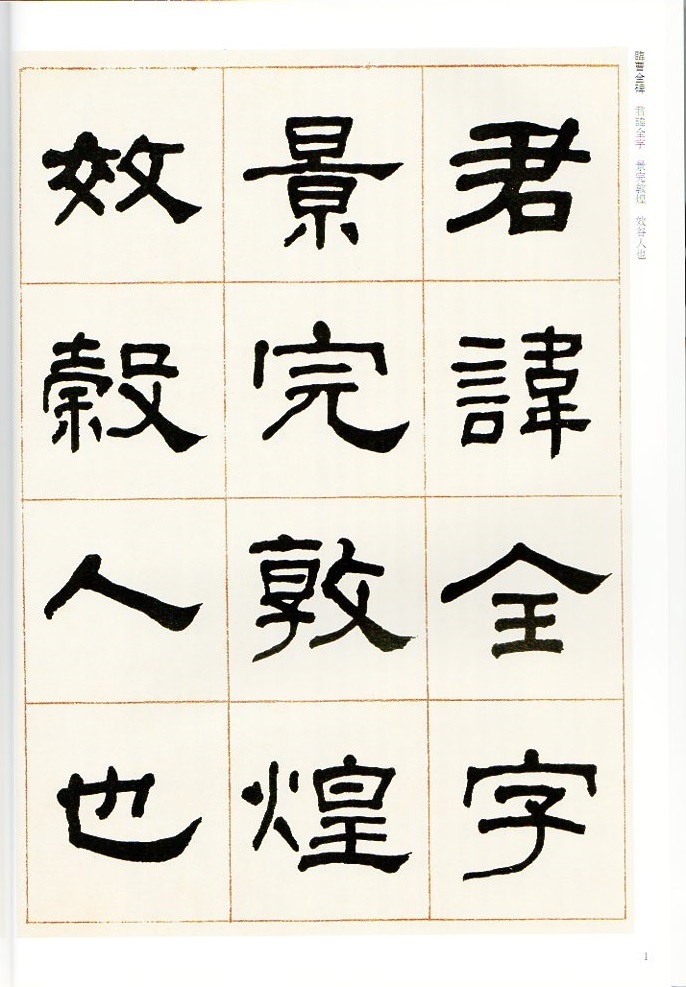 臨曹全碑 君諱全字 景完敦煌 效谷人也
君諱全字
景完敦煌
效穀人也
1